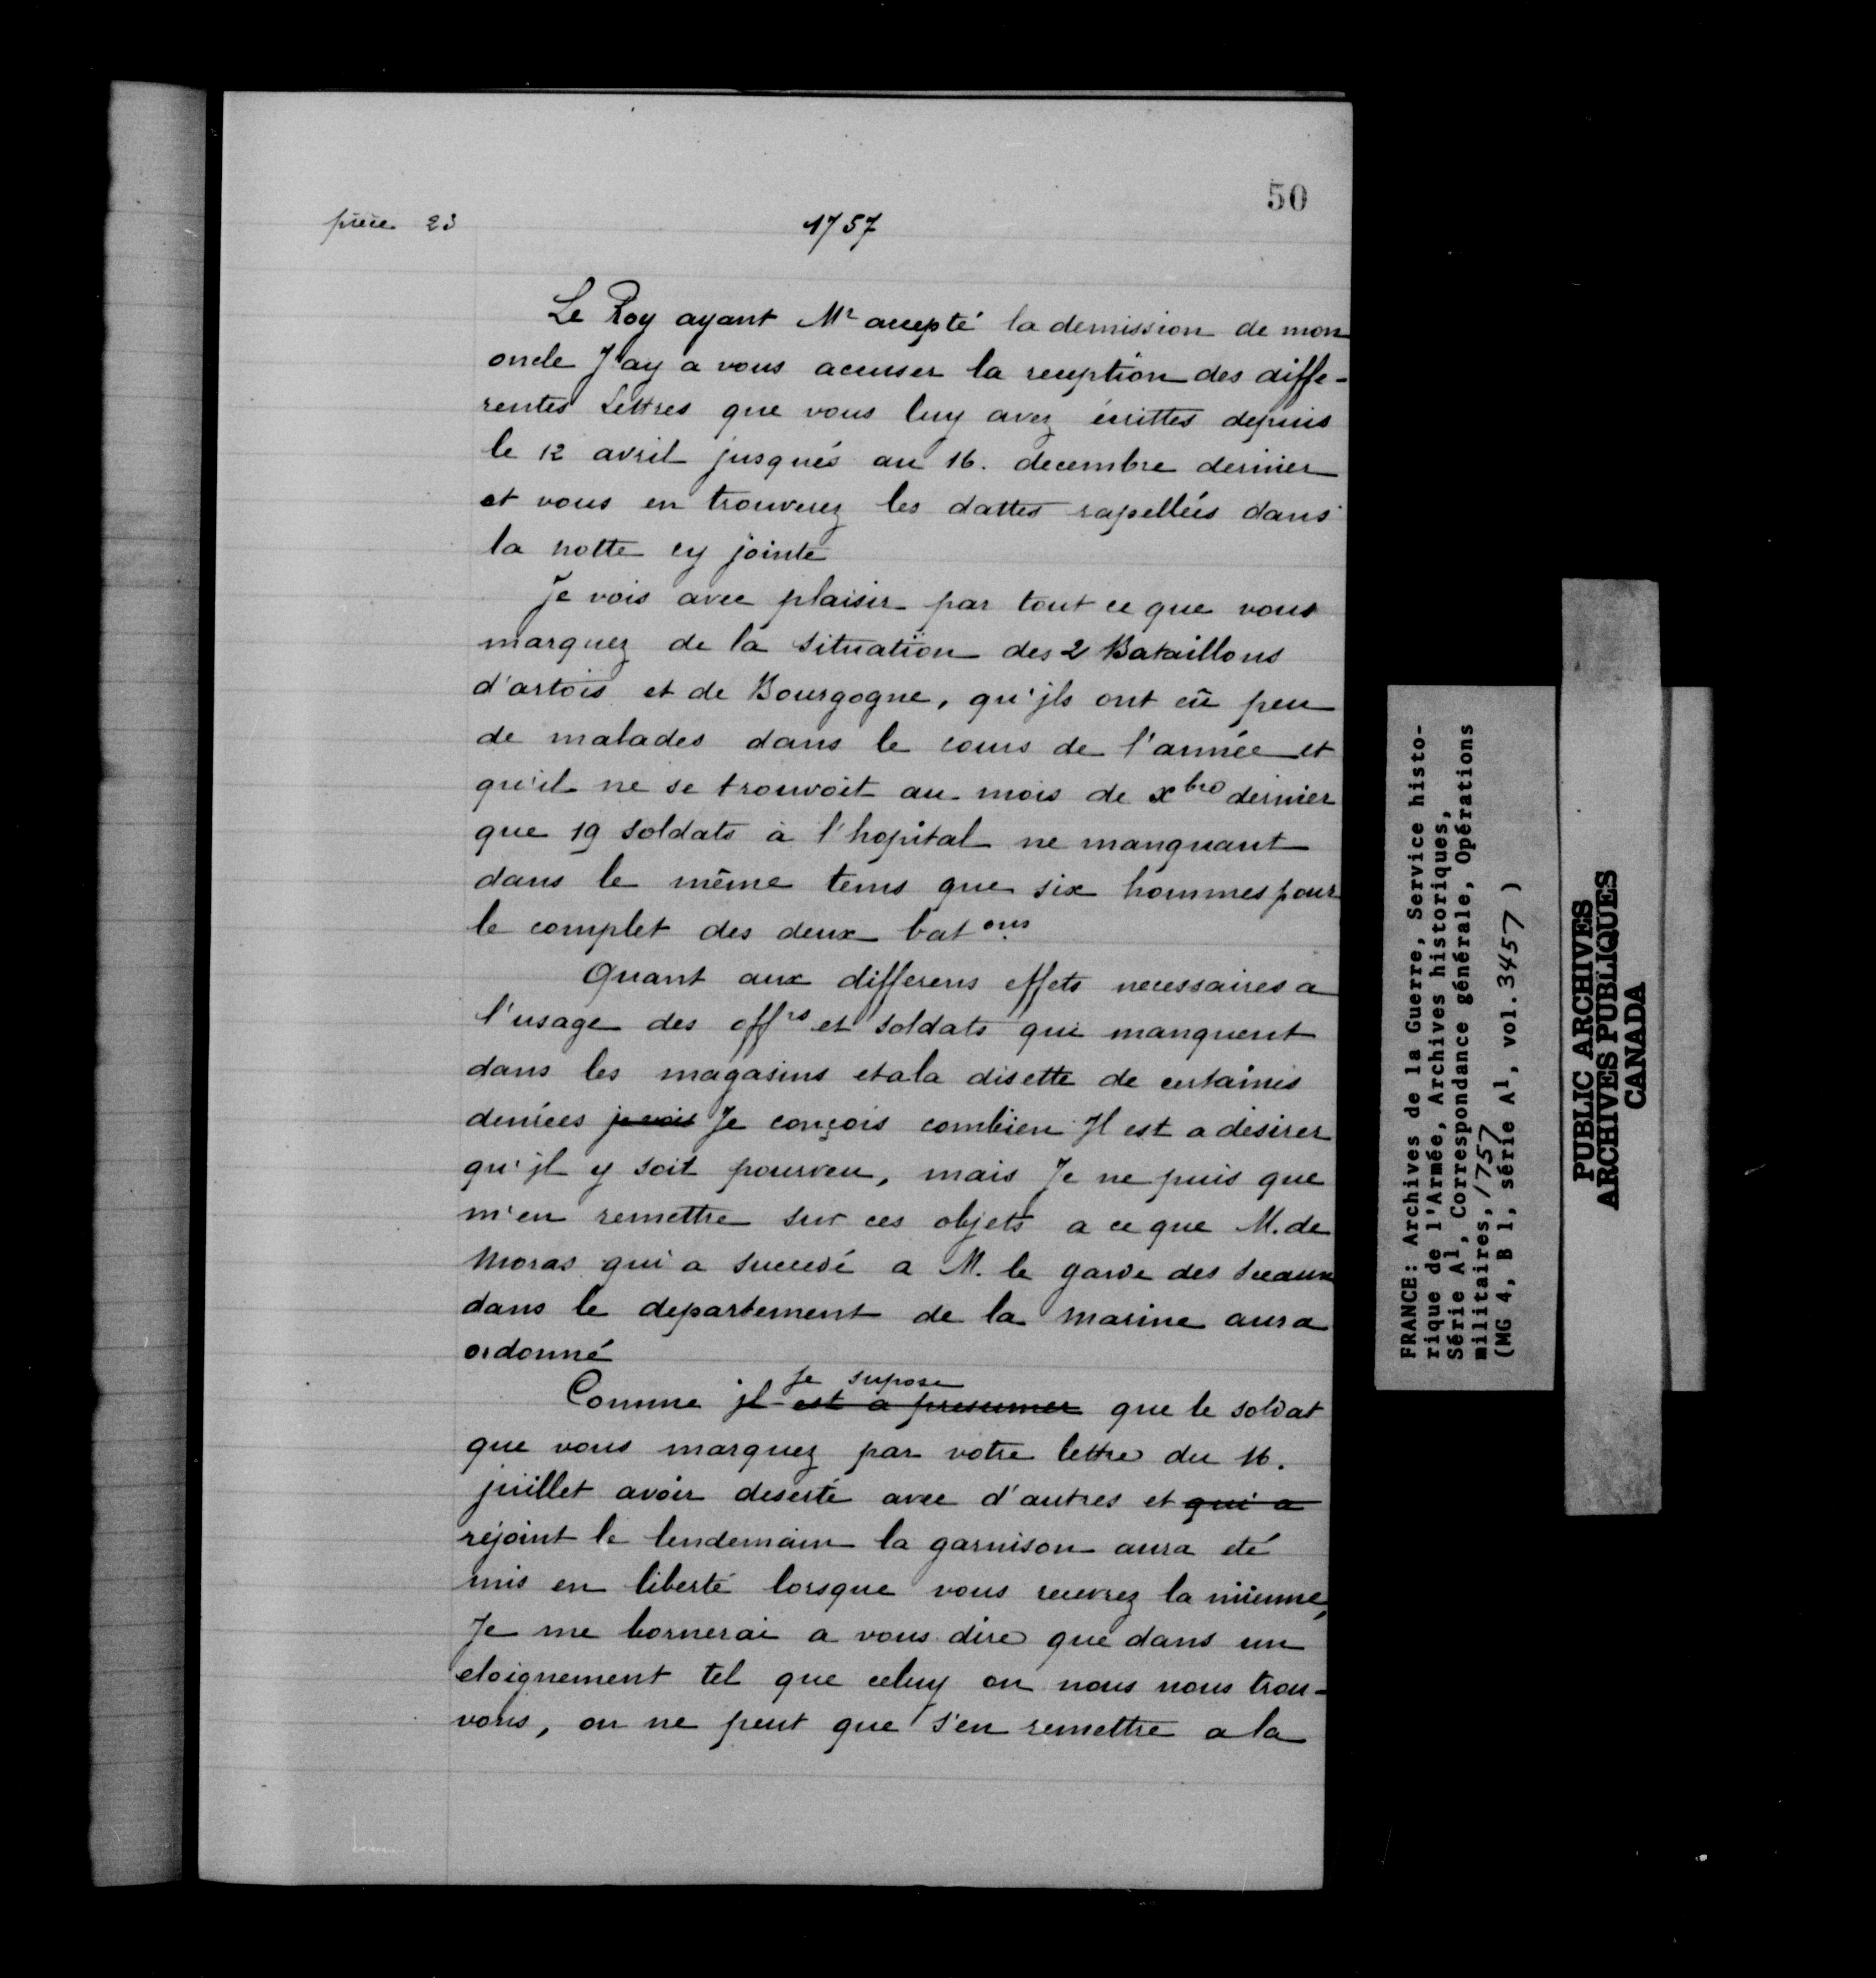 50
pièce 23
1757
Le Roy ayant Mr accepté la demission de mon
oncle J'ay a vous accuser la reception des diffe-
rentes Lettres que vous luy avez écrittes depuis
le 12 avril jusqués au 16. decembre dernier
et vous en trouverez les dattes rapellées dans
la notte cy jointe
Je vois avec plaisir par tout ce que vous
marquez de la situation des 2 Bataillons
d'artois et de Bourgogne, qu'jls ont eû peu
de malades dans le cours de l'année et
qu'il ne se trouvoit au mois de xbre dernier
que 19 soldats à l'hopital ne manquant
dans le même tems que six hommes pour
le complet des deux batons.
Quant aux differens effets necessaires a
l'usage des offrs et soldats qui manquent
dans les magasins et a la disette de certaines
denrées je vois Je conçois combien Jl est a désirer
qu'jl y soit pourveu, mais Je ne puis que
m'en remettre sur ces objets a ce que M. de
Moras qui a succedé a M. le garde des sceaux
dans le departement de la marine aura
ordonné
Je supose
Comme jl est a presumer que le soldat
que vous marquez par votre lettre du 16.
juillet avoir deserté avec d'autres et qui a
rejoint le lendemain la garnison aura eté
mis en liberté lorsque vous recevrez la mienne,
Je me bornerai a vous dire que dans un
eloignement tel que celuy ou nous nous trou-
vons, on ne peut que s'en remettre a la
FRANCE: Archives de la Guerre, Service histo-
rique de l'Armée, Archives historiques,
Série A1, Correspondance générale, Opérations
militaires, 1757
(MG 4, B 1, série A1, vol. 3457 )
PUBLIC ARCHIVES
ARCHIVES PUBLIQUES
CANADA